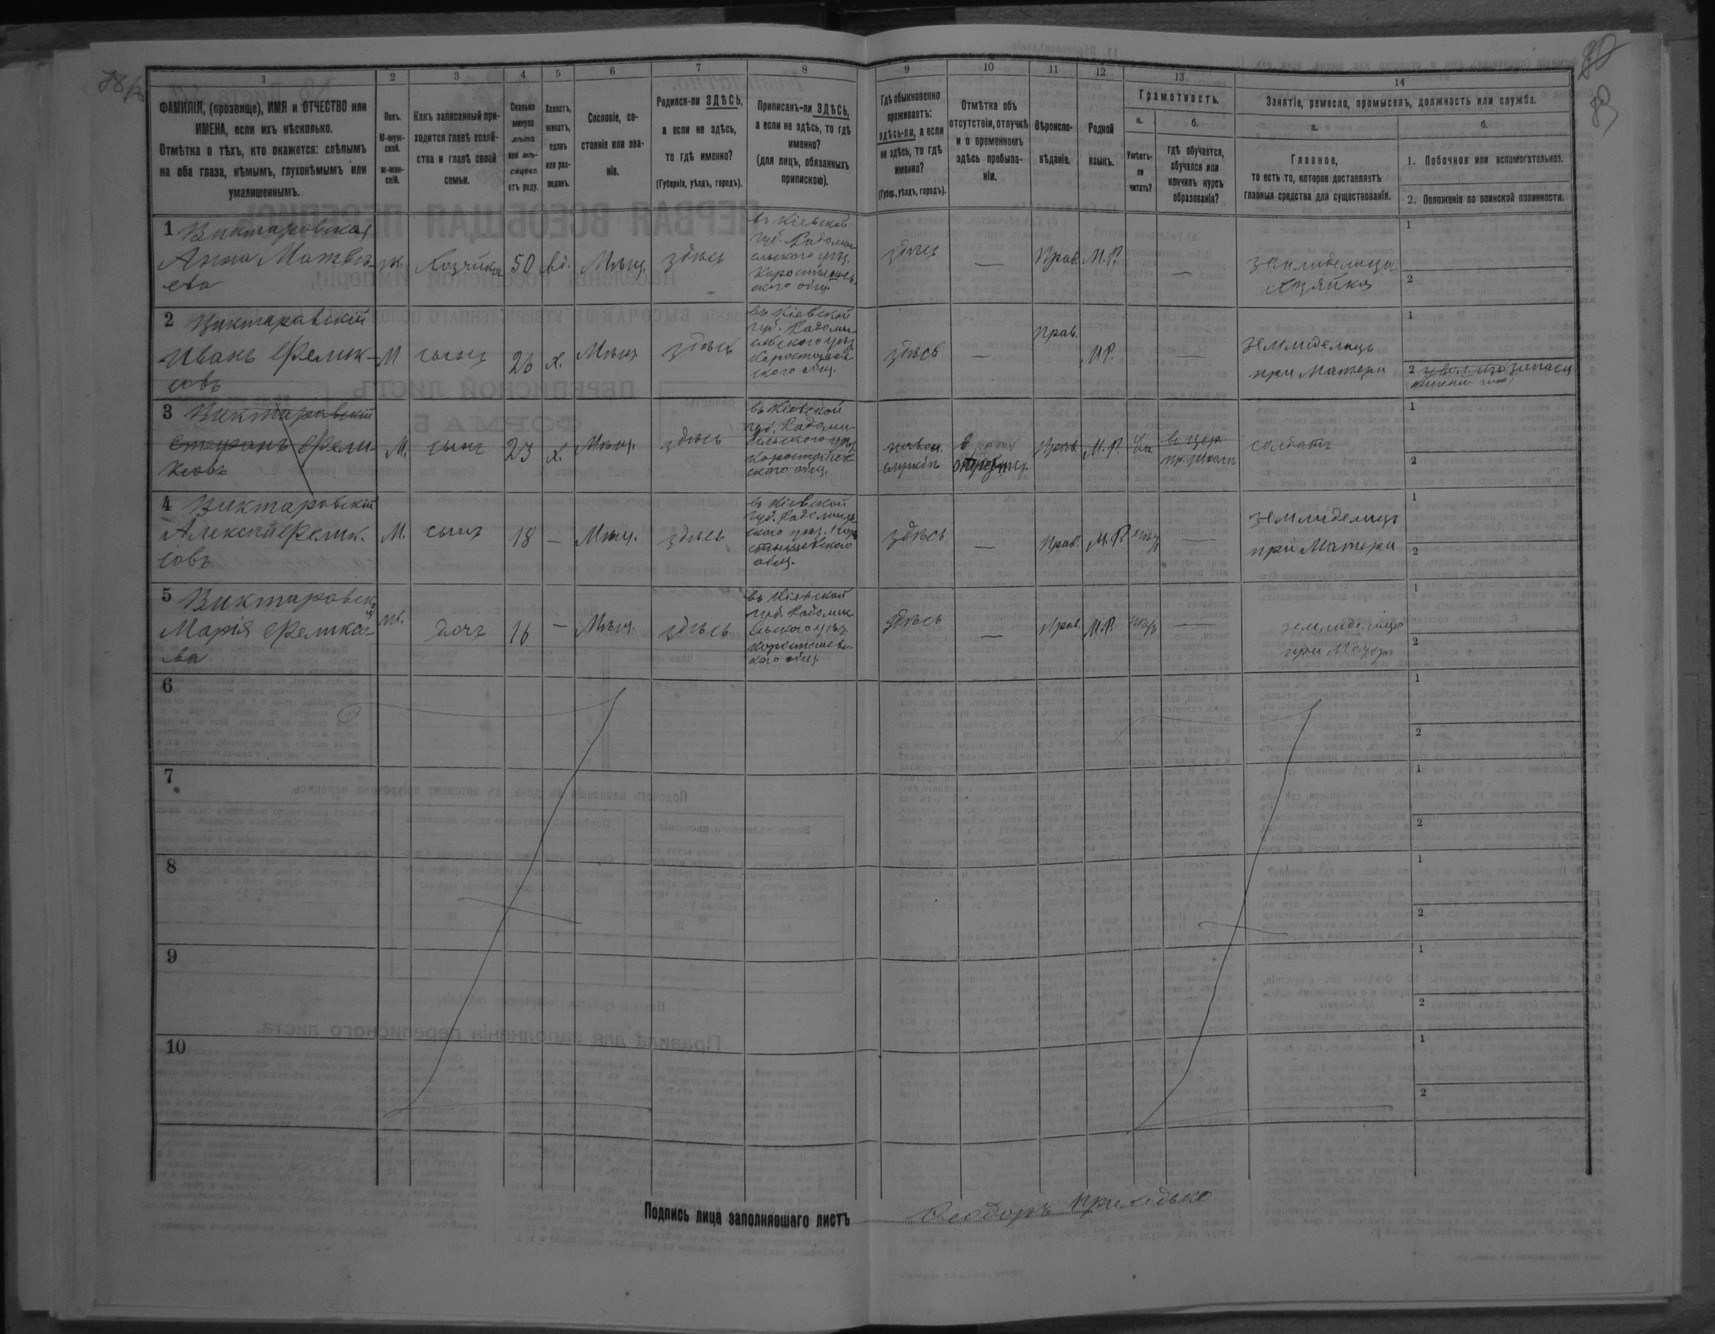 78
80
1 2 3 4 5 6 7 8 9 10 11 12 13 14
ФАМИЛІЯ, (прозвище), ИМЯ и ОТЧЕСТВО или
ИМЕНА, если ихъ нѣсколько.
Отмѣтка о тѣхъ, кто окажется: слѣпымъ
на оба глаза, нѣмымъ, глухонѣмымъ или
умалишеннымъ.
Полъ.
М-муж-
ской.
ж-жен-
скій.
Какъ записанный при-
ходится главѣ хозяй-
ства и главѣ своей
семьи.
Сколько
минуло
лѣтъ
или мѣ-
сяцевъ
отъ роду.
Холостъ,
женатъ,
вдовъ
или раз-
веденъ.
Сословіе, со-
стояніе или зва-
ніе.
Родился-ли ЗДѢСЬ,
а если не здѣсь,
то гдѣ именно?
(Губернія, уѣздъ, городъ).
Приписанъ-ли ЗДѢСЬ,
а если не здѣсь, то гдѣ
именно?
(для лицъ, обязанныхъ
припискою).
Гдѣ обыкновенно
проживаетъ:
здѣсь-ли, а если
не здѣсь, то гдѣ
именно?
(Губер., уѣздъ, городъ).
Отмѣтка объ
отсутствіи, отлучкѣ
и о временномъ
здѣсь пребыва-
ніи.
Вѣроиспо-
вѣданіе.
Родной
языкъ.
Грамотность.
а.
Умѣетъ-
ли
читать?
б.
Гдѣ обучается,
обучался или
кончилъ курсъ
образованія?
Занятіе, ремесло, промыселъ, должность или служба.
а.
Главное,
то есть то, которое доставляетъ
главныя средства для существованія.
б.
1. Побочное или вспомогательное.
2. Положеніе по воинской повинности.
1 Виктаровская
Анна Матвѣ-
ева
ж. Хозяйка 50 вд. Мѣщ. здѣсь
въ Кіевской
губ. Радомы-
сльского уѣз.
Коростышев-
ского общ.
здѣсь — Прав. М.Р. —
земледелица
хозяйка
1
2
2 Виктаровскій
Иванъ Фелик-
совъ
М сынъ 26 х. Мѣщ здѣсь
въ Кіевской
губ. Радомы-
сльского уѣз
Коростышев-
ского общ.
здѣсь — Прав. М.Р. —
земледелецъ
при Матери
1
2
3 Виктаровскій
Степанъ Фели-
ксовъ
М. сынъ 23 х. Мѣщ. здѣсь
въ Кіевской
губ. Радомы-
сльского уѣз
Коростышев-
ского общ.
службѣ Прав. М.Р. Да
въ цер
пр. школѣ
солдатъ
1
2
4 Виктаровскій
Алексѣй Фелик-
совъ
М. сынъ 18 — Мѣщ. здѣсь
въ Кіевской
губ. Радомысль-
ского уѣз. Коро-
стышевского
общ.
здѣсь — Прав. М.Р. —
земледелецъ
при Матери
1
2
5 Виктаровская
Марія Феликсо-
ва
ж. дочь 16 — Мѣщ. здѣсь
въ Кіевской
губ. Радомы-
сльского уѣз
Коростышев-
кого общ.
здѣсь — Прав. М.Р. —
земледелица
при Матери
1
2
6
1
2
7
1
2
8
1
2
9
1
2
10
1
2
Подпись лица заполнявшаго листъ Ѳеодоръ Приходько